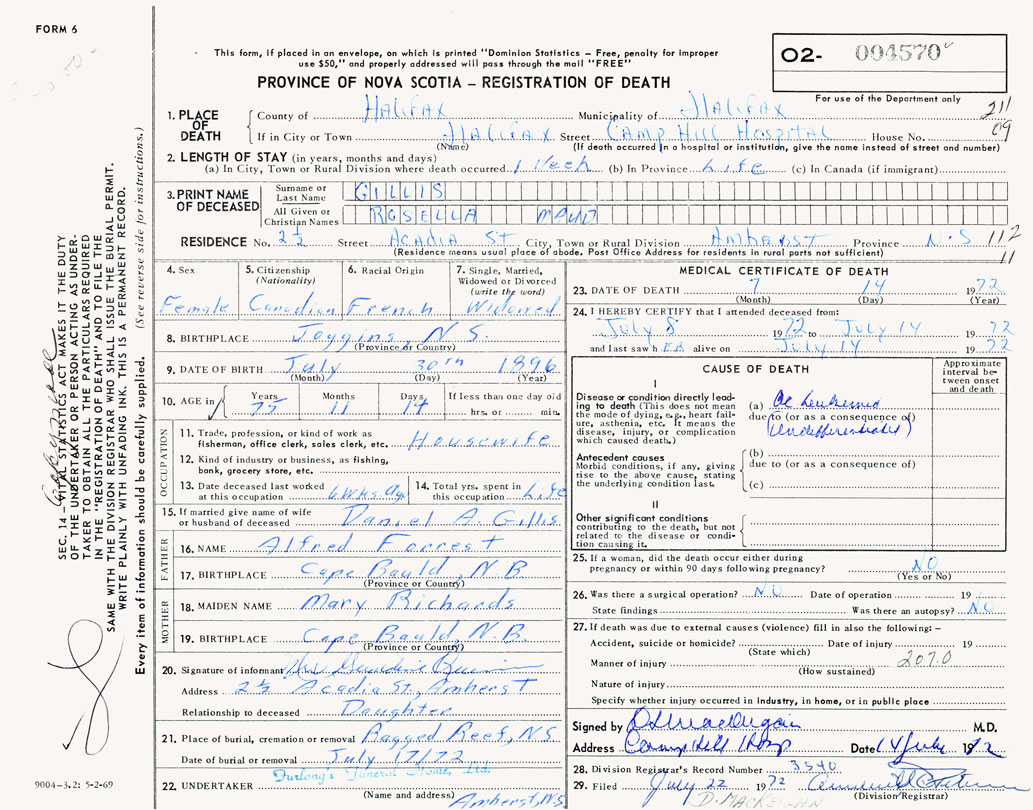 FORM 6
This form, if placed in an envelope, on which is printed "Dominion Statistics – Free, penalty for improper
use $50," and properly addressed will pass through the mail "FREE"
O2- 004570
For use of the Department only
PROVINCE OF NOVA SCOTIA – REGISTRATION OF DEATH
211
09
1. PLACE OF DEATH
County of Halifax Municipality of Halifax
If in City or Town Halifax Street Camp Hill Hospital House No.
(Name) (If death occurred in a hospital or institution, give the name instead of street and number)
2. LENGTH OF STAY (in years, months and days)
(a) In City, Town or Rural Division where death occurred 1 Week (b) In Province Life (c) In Canada (if immigrant)
3. PRINT NAME OF DECEASED
Surname or Last Name GILLIS
All Given or Christian Names ROSELLA MAUD
RESIDENCE No. 2½ Street Acadia St City, Town or Rural Division Amherst Province N.S 112
11
(Residence means usual place of abode. Post Office Address for residents in rural parts not sufficient)
4. Sex
Female
5. Citizenship (Nationality)
Canadian
6. Racial Origin
French
7. Single, Married, Widowed or Divorced (write the word)
Widowed
8. BIRTHPLACE Joggins, N.S.
(Province or Country)
9. DATE OF BIRTH July 30th 1896
(Month) (Day) (Year)
10. AGE in
Years Months Days If less than one day old
75 11 14 hrs. or min.
OCCUPATION
11. Trade, profession, or kind of work as
fisherman, office clerk, sales clerk, etc. Housewife
12. Kind of industry or business, as fishing,
bank, grocery store, etc.
13. Date deceased last worked
at this occupation 6 Wks. Ago
14. Total yrs. spent in
this occupation Life
15. If married give name of wife
or husband of deceased Daniel A. Gillis
FATHER
16. NAME Alfred Forrest
17. BIRTHPLACE Cape Bauld, N.B
(Province or Country)
MOTHER
18. MAIDEN NAME Mary Richards
19. BIRTHPLACE Cape Bauld, N.B.
(Province or Country)
20. Signature of informant Mrs
Address 2½ Acadia St., Amherst
Relationship to deceased Daughter
21. Place of burial, cremation or removal Ragged Reef, N.S.
Date of burial or removal July 17/72
22. UNDERTAKER Furlong's Funeral Home, Ltd.
(Name and address) Amherst, N.S
MEDICAL CERTIFICATE OF DEATH
23. DATE OF DEATH 7 14 1972
(Month) (Day) (Year)
24. I HEREBY CERTIFY that I attended deceased from:
July 8 1972 to July 14 1972
and last saw h ER alive on July 14 1972
CAUSE OF DEATH
Approximate interval between onset and death
I
Disease or condition directly leading to death (This does not mean the mode of dying, e.g., heart failure, asthenia, etc. It means the disease, injury, or complication which caused death.)
(a) Ac Leukemia
due to (or as a consequence of)
(Undifferentiated)
Antecedent causes
Morbid conditions, if any, giving rise to the above cause, stating the underlying condition last.
(b)
due to (or as a consequence of)
(c)
II
Other significant conditions
contributing to the death, but not related to the disease or condition causing it.
25. If a woman, did the death occur either during
pregnancy or within 90 days following pregnancy? NO
(Yes or No)
26. Was there a surgical operation? N.O Date of operation 19
State findings Was there an autopsy? NO
27. If death was due to external causes (violence) fill in also the following: –
Accident, suicide or homicide? Date of injury 19
(State which)
Manner of injury 207.0
(How sustained)
Nature of injury
Specify whether injury occurred in industry, in home, or in public place
Signed by M.D.
Address Camp Hill Hosp Date 14 July 1972
28. Division Registrar's Record Number 3540
29. Filed July 22 1972
(Division Registrar)
D. MACKEIGAN
SEC. 14 – VITAL STATISTICS ACT MAKES IT THE DUTY
OF THE UNDERTAKER OR PERSON ACTING AS UNDER-
TAKER TO OBTAIN ALL THE PARTICULARS REQUIRED
IN THE "REGISTRATION OF DEATH" AND TO FILE THE
SAME WITH THE DIVISION REGISTRAR WHO SHALL ISSUE THE BURIAL PERMIT.
WRITE PLAINLY WITH UNFADING INK. THIS IS A PERMANENT RECORD.
Every item of information should be carefully supplied. (See reverse side for instructions.)
9004-3.2: 5-2-69